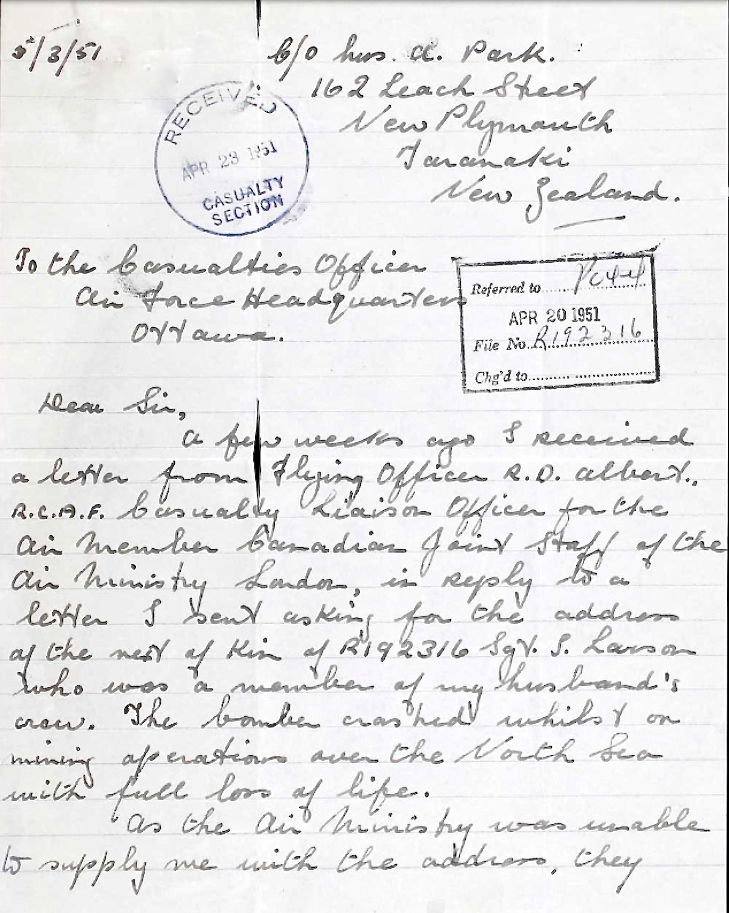 5/3/51
C/o Mrs. A. Park.
162 Leach Street
New Plymouth
Taranaki
New Zealand.
RECEIVED
APR 23 1951
CASUALTY
SECTION
To the Casualties Officer
Air Force Headquarters
Ottawa.
Referred to
APR 20 1951
File No. R192316
Chg'd to
Dear Sir,
A few weeks ago I received
a letter from Flying Officer R.D. Albert,
R.C.A.F. Casualty Liaison Officer for the
Air Member Canadian Joint Staff of the
Air Ministry London, in reply to a
letter I sent asking for the address
of the next of Kin of R192316 Sgt. S. Larson
who was a member of my husband's
crew. The bomber crashed whilst on
mining operations over the North Sea
with full loss of life.
As the Air Ministry was unable
to supply me with the address, they